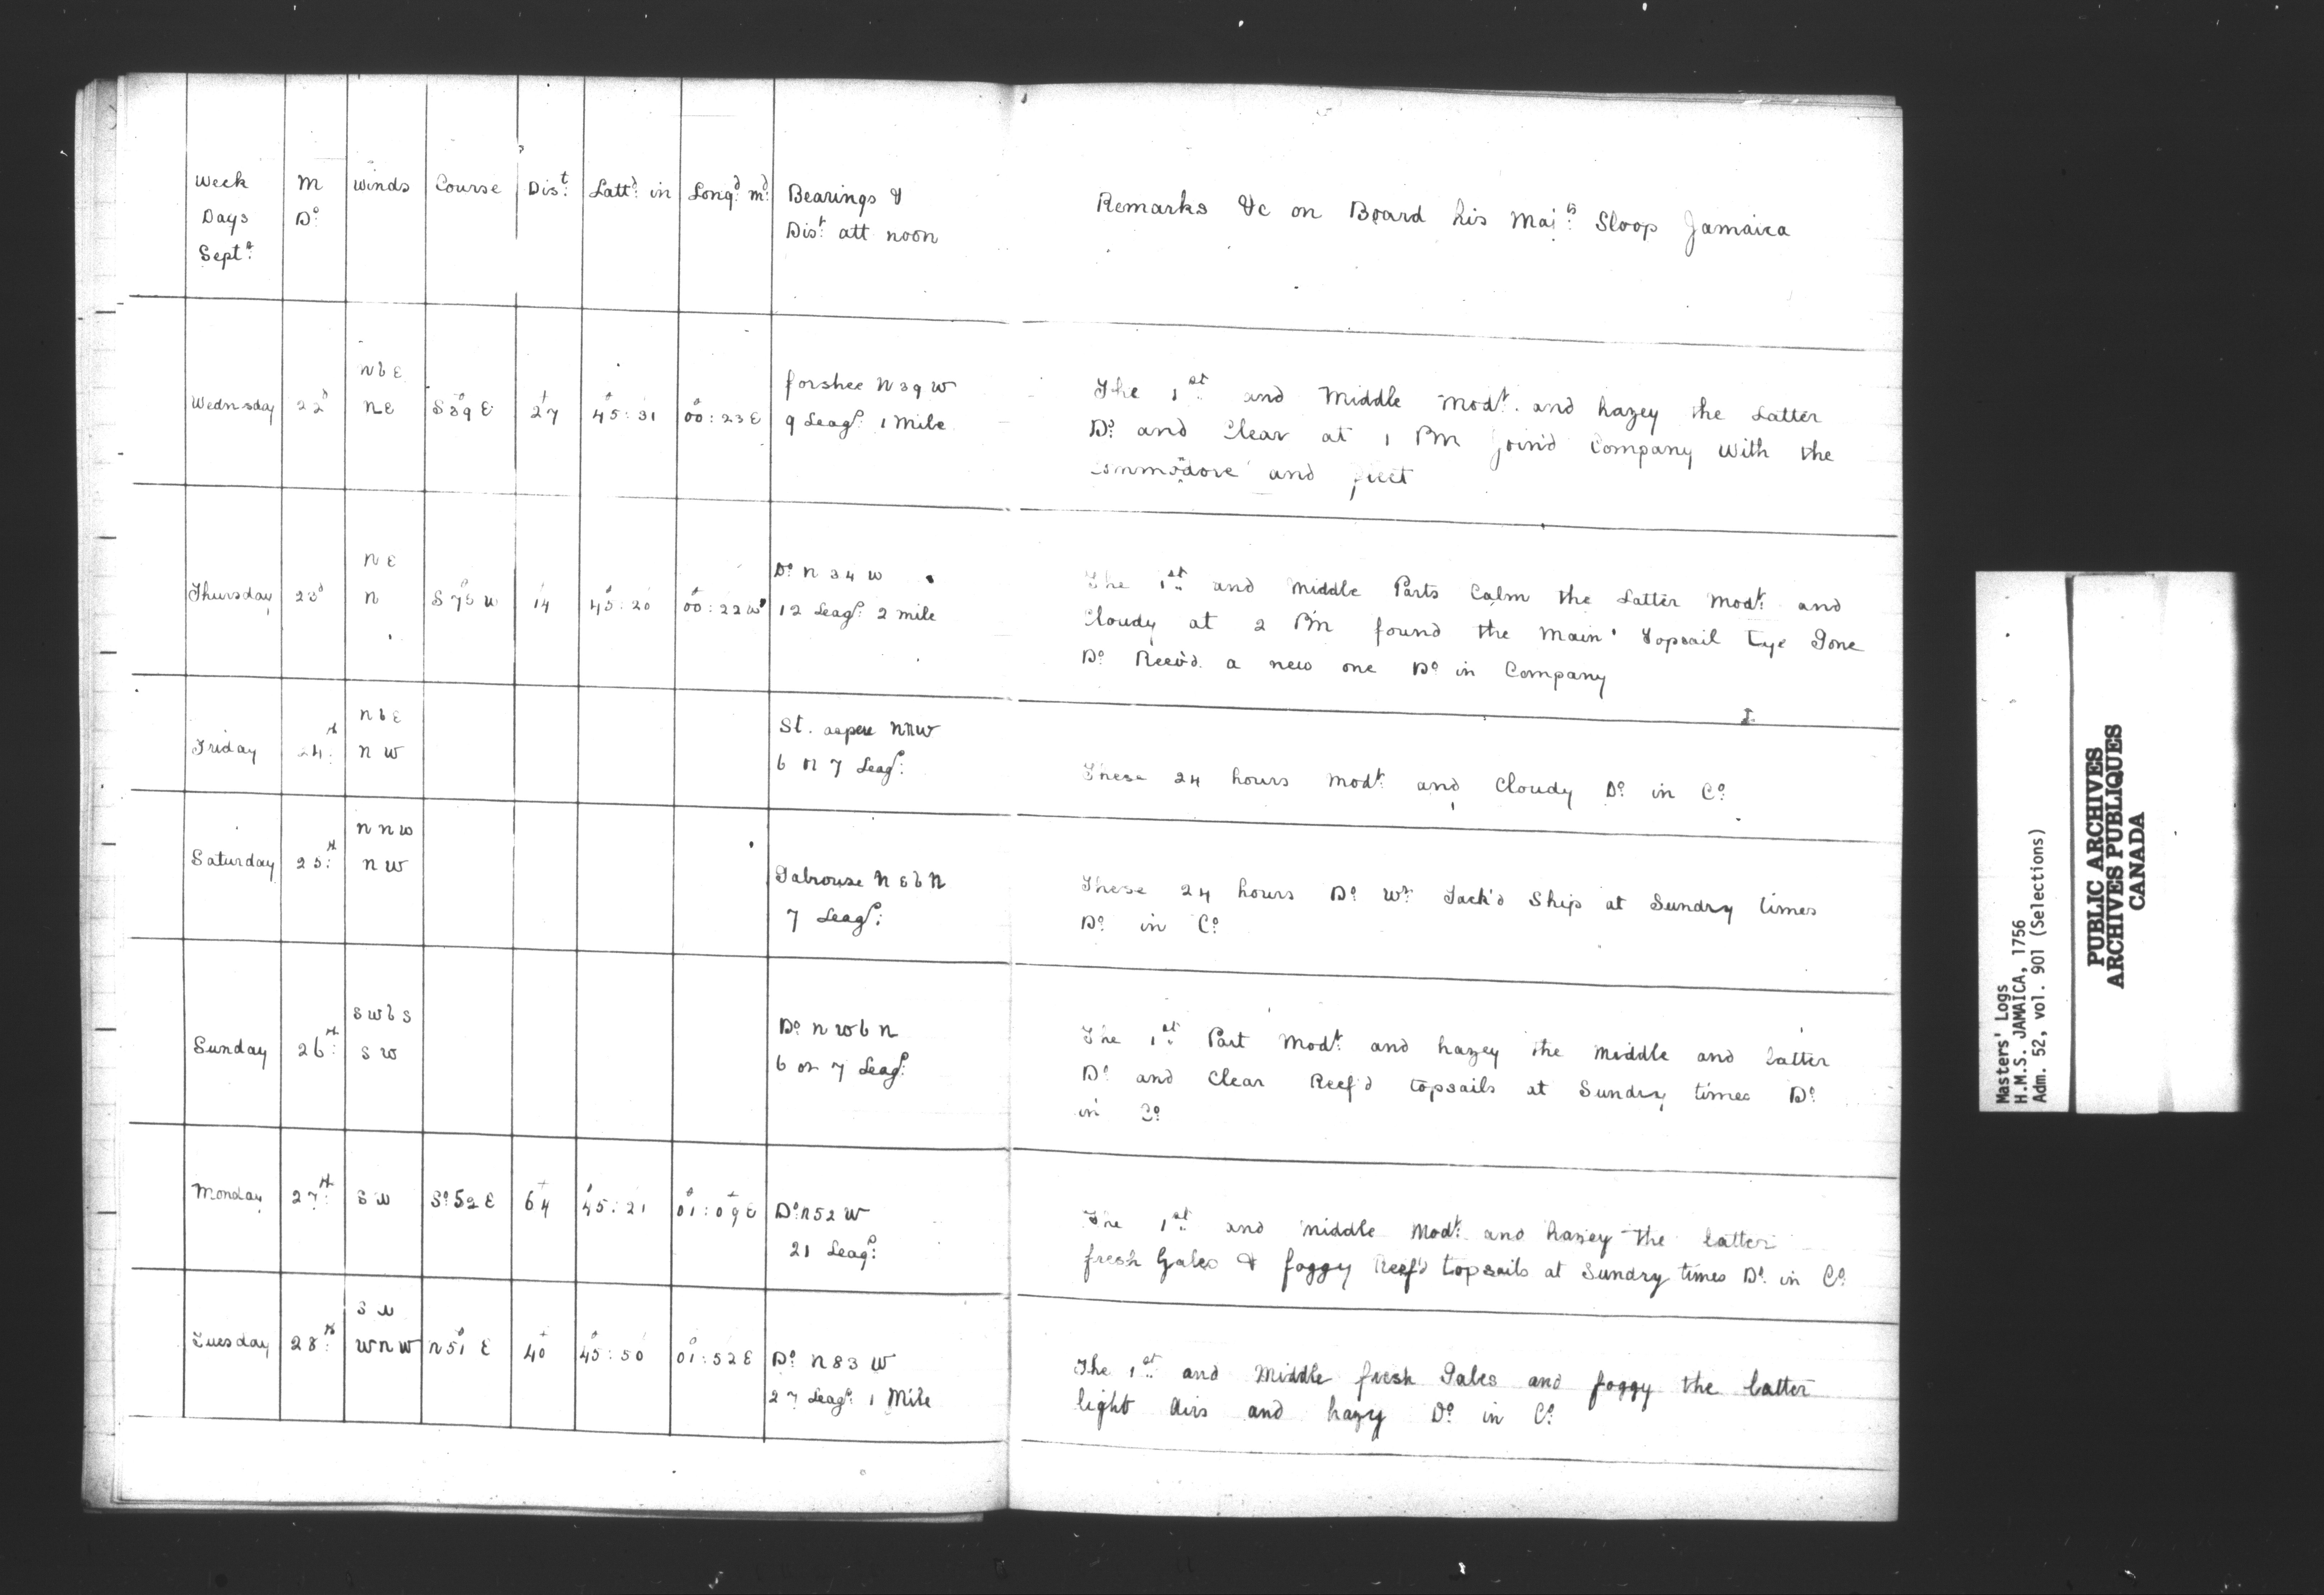 Week Days Septr. | M Do. | Winds | Course | Dist. | Lattd. in | Longd. md. | Bearings & Dist. att noon | Remarks &c on Board his Majts. Sloop Jamaica
Wednsday | 22d | n b E
n E | S 39 E | 27 | 45:31 | 00:23 E | forshee N 39 W
9 Leags. 1 Mile
The 1st. and Middle Modt. and hazey the Latter
Do. and Clear at 1 PM Join'd Company With the
Commodore and fleet
Thursday | 23d | n E
n | S 75 W | 14 | 45:20 | 00:22 W | Do. N 34 W
12 Leags. 2 mile
The 1st. and middle Parts Calm the Latter Modt. and
Cloudy at 2 PM found the Main Topsail Tye Gone
Do. Reev'd a new one Do. in Company
Friday | 24th. | n b E
n W | St. aspere NNW
6 or 7 Leags.
These 24 hours Modt. and Cloudy Do. in Co.
Saturday | 25th. | n n w
n W | Gabrouse N E b N
7 Leags.
These 24 hours Do. Wr. Tack'd Ship at Sundry times
Do. in Co.
Sunday | 26th. | s w b s
s w | Do. N W b N
6 or 7 Leags.
The 1st. Part Modt. and hazey the middle and latter
Do. and Clear Reef'd topsails at Sundry times Do.
in Co.
Monday | 27th. | s w | So. 52 E | 64 | 45:21 | 01:09 E | Do. N 52 W
21 Leags.
The 1st. and middle Modt. and hazey the latter
fresh Gales & foggy Reef'd topsails at Sundry times Do. in Co.
Tuesday | 28th. | s w
W n W | N 51 E | 40 | 45:50 | 01:52 E | Do. N 83 W
27 Leags. 1 Mile
The 1st. and Middle fresh Gales and foggy the latter
light Airs and hazy Do. in Co.
Masters' Logs
H.M.S. JAMAICA, 1756
Adm. 52, vol. 901 (Selections)
PUBLIC ARCHIVES
ARCHIVES PUBLIQUES
CANADA